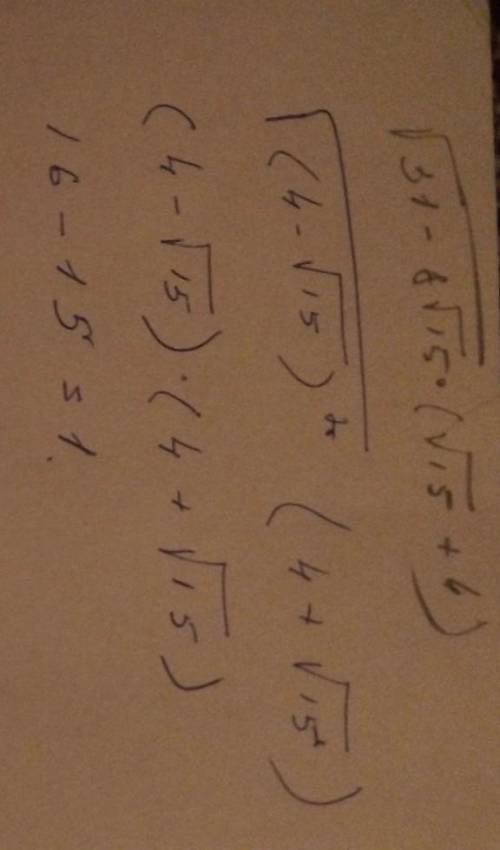 √31-8√15·(√15+4)
√(4-√15)² (4+√15)
(4-√15)·(4+√15)
16-15=1.